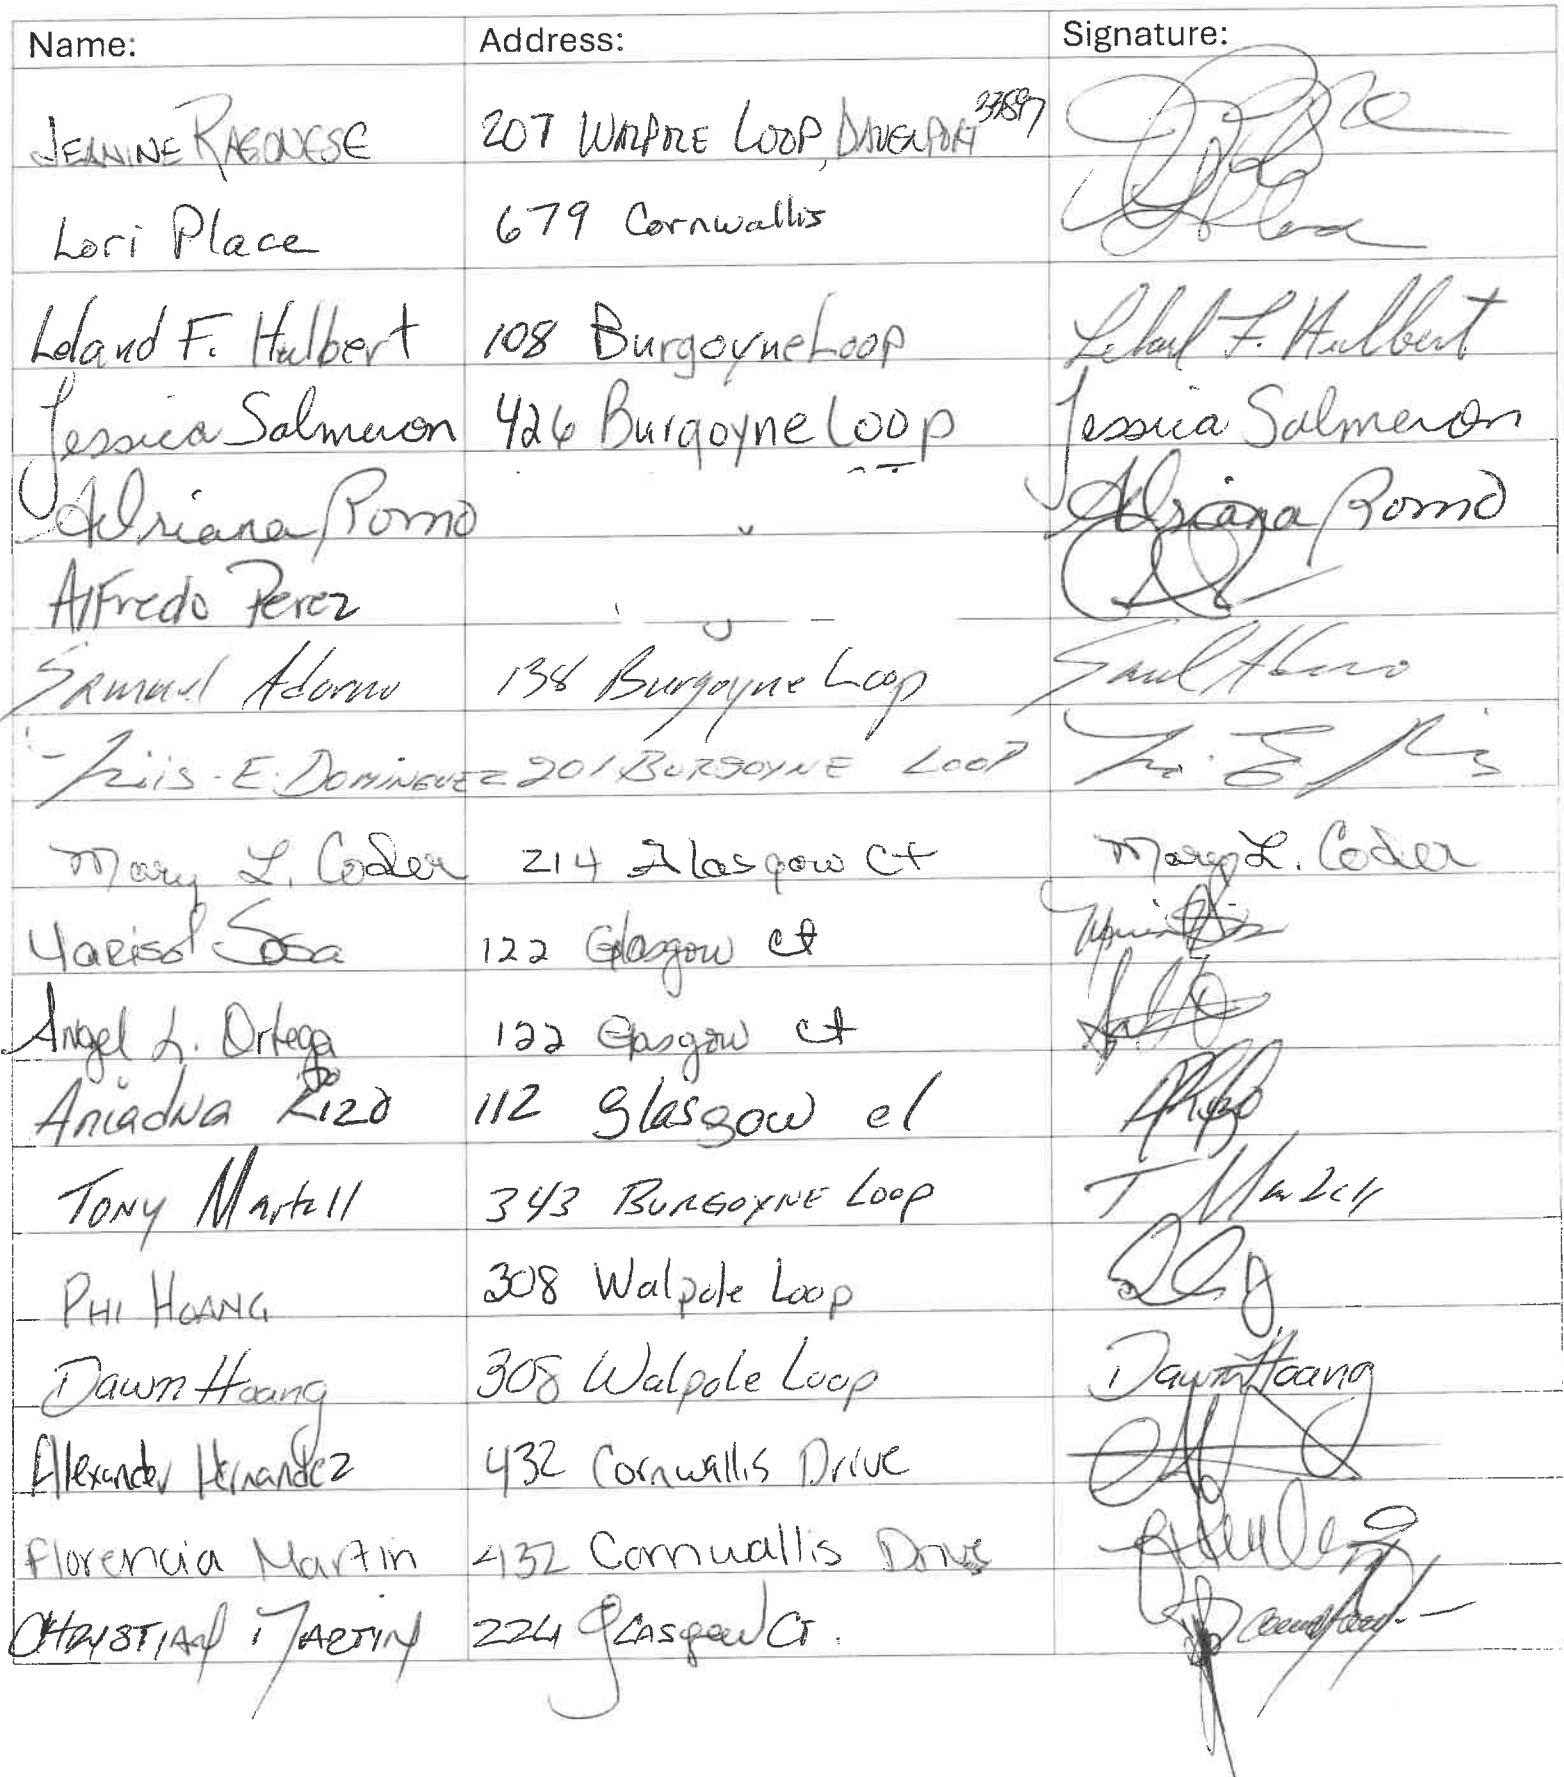 Name: Address: Signature:
JEANINE RAGONESE 207 WALPOLE LOOP, DAVENPORT 33897
Lori Place 679 Cornwallis
Leland F. Hulbert 108 Burgoyne Loop Leland F. Hulbert
Jessica Salmeron 426 Burgoyne Loop Jessica Salmeron
Adriana Romo Adriana Romo
Alfredo Perez
Samuel Adorno 138 Burgoyne Loop
Luis E. DOMINGUEZ 201 BURGOYNE LOOP
Mary L. Coder 214 Glasgow Ct Mary L. Coder
Marisol Sosa 122 Glasgow ct
Angel L. Ortega 122 Glasgow ct
Ariadna Rizo 112 Glasgow ct
TONY Martell 343 BURGOYNE LOOP T Martell
PHI HOANG 308 Walpole Loop
Dawn Hoang 308 Walpole Loop Dawn Hoang
Alexander Hernandez 432 Cornwallis Drive
Florencia Martin 432 Cornwallis Drive
CHRYSTIAN MARTIN 224 GLASgow CT.